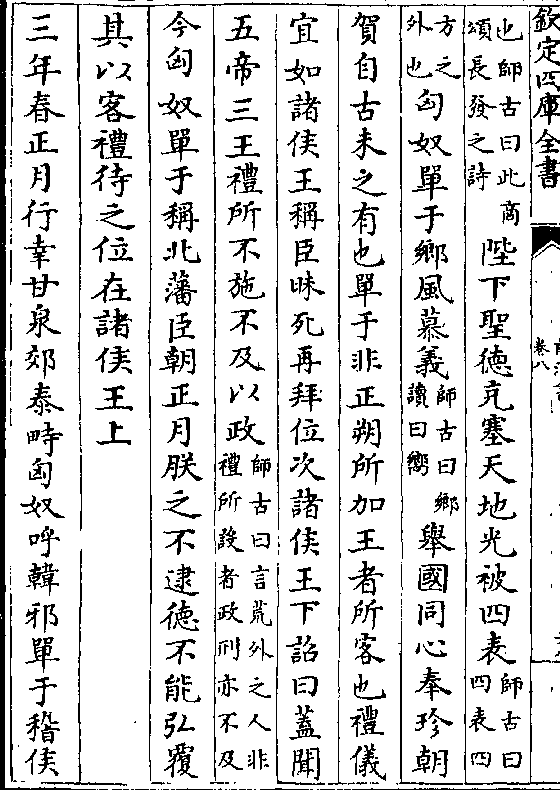 欽定四庫全書
卷八
也師古曰此商頌長發之詩陛下聖德充塞天地光被四表師古曰四表四
方之外也匈奴單于鄉風慕義師古曰鄉讀曰嚮舉國同心奉珍朝
賀自古未之有也單于非正朔所加王者所客也禮儀
宜如諸侯王稱臣昧死再拜位次諸侯王下詔曰蓋聞
五帝三王禮所不施不及以政師古曰言荒外之人非禮所設者政刑亦不及
今匈奴單于稱北藩臣朝正月朕之不逮德不能弘覆
其以客禮待之位在諸侯王上
三年春正月行幸甘泉郊泰畤匈奴呼韓邪單于稽侯